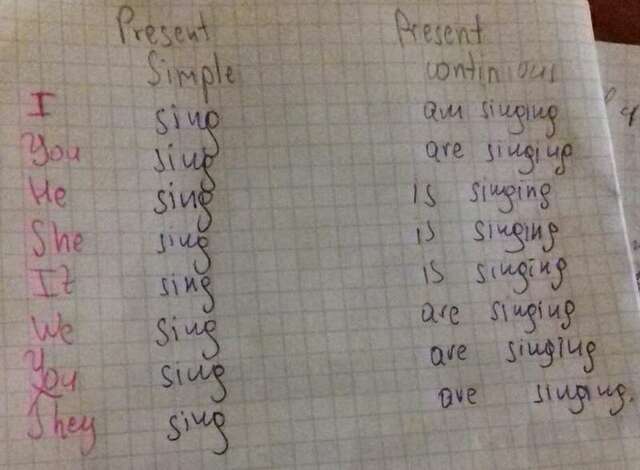 Present Present
Simple continious
I sing am singing
You sing are singing
He sing is singing
She sing is singing
It sing is singing
We sing are singing
You sing are singing
They sing are singing.